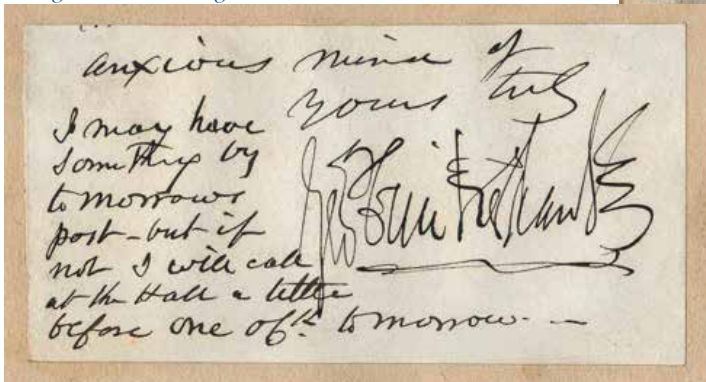 anxious mind of
yours truly
Geo Cruikshank
I may have
something by
tomorrows
post - but if
not I will call
at the Hall a little
before one o
tomorrow. -